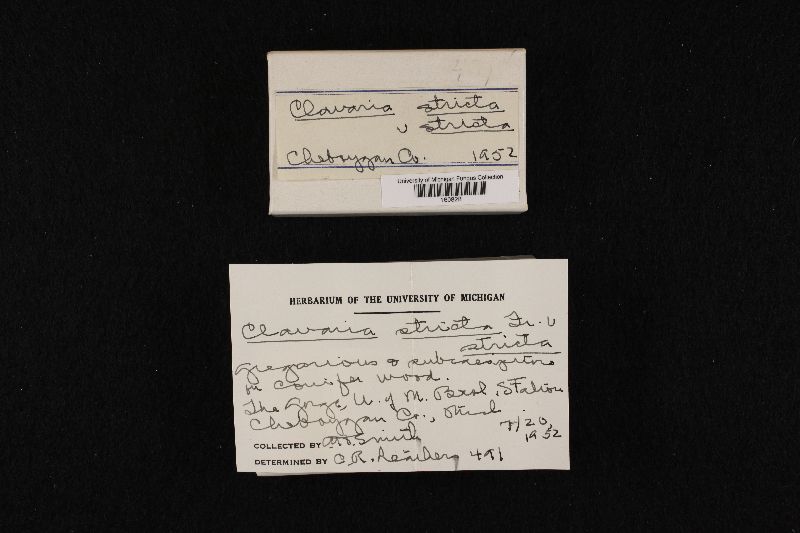 Clavaria stricta
v stricta
Cheboygan Co. 1952
University of Michigan Fungus Collection
HERBARIUM OF THE UNIVERSITY OF MICHIGAN
Clavaria stricta Fr. v
stricta
Gregarious & subcaespitose
on conifer wood.
The Gorge U. of M. Biol. Station
Cheboygan Co., Mich
7/20,
1952
COLLECTED BY Smith
DETERMINED BY C.R. 491